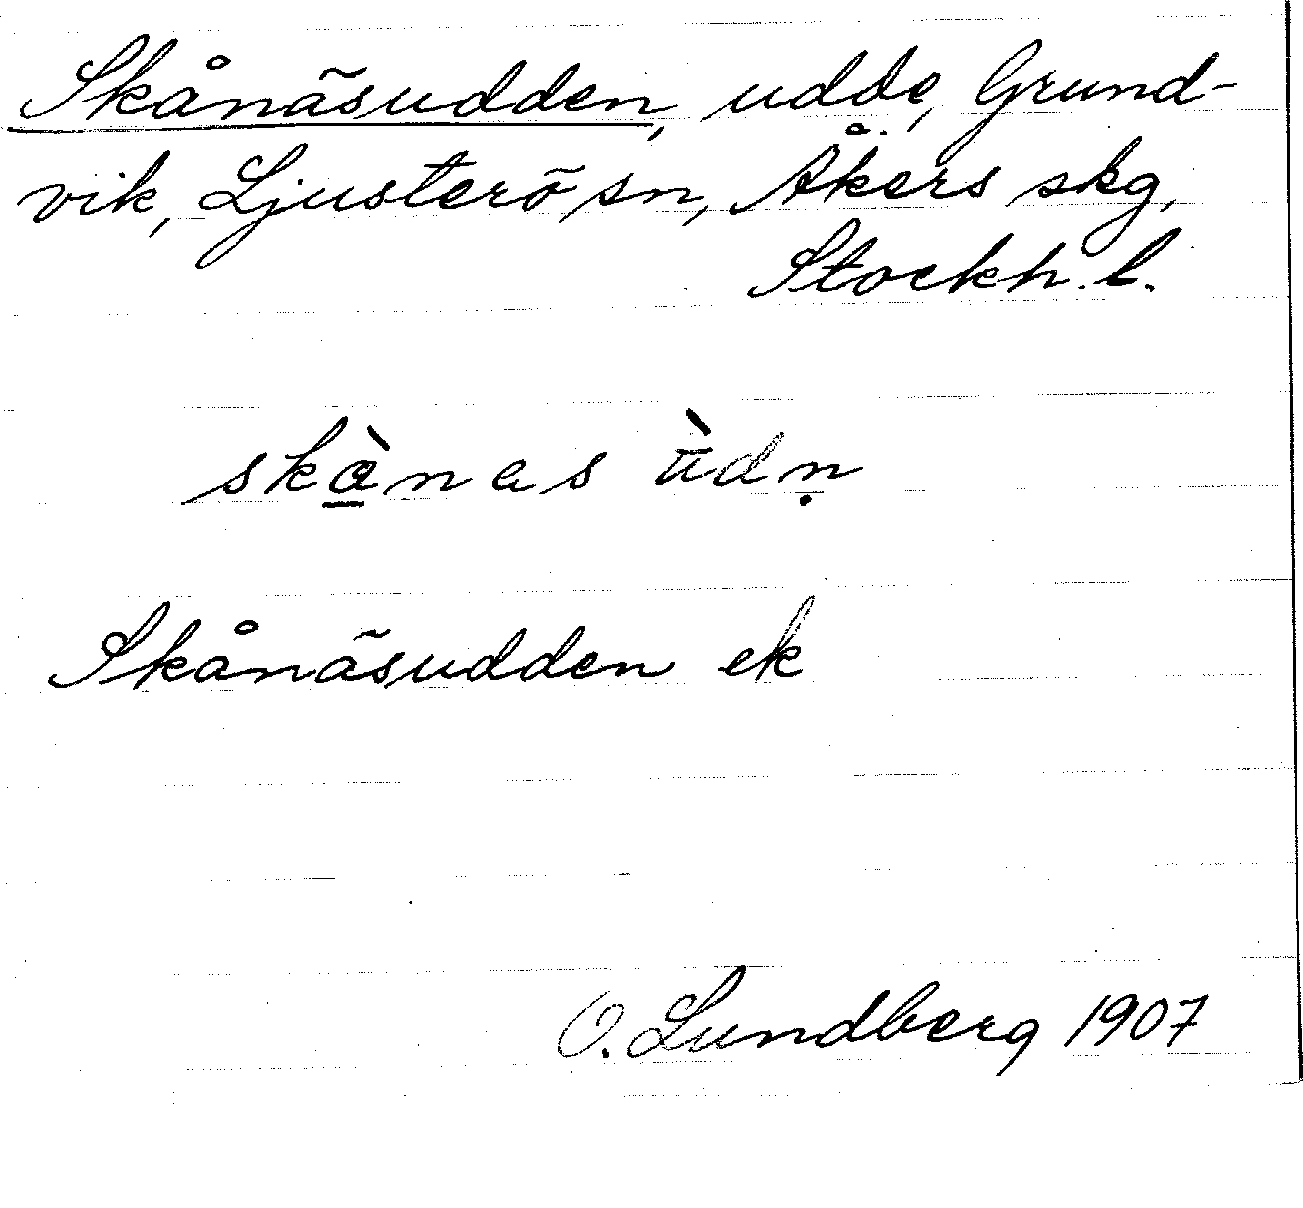 Skånäsudden, udde, Grund-
vik, Ljusterö sn, Åkers skg,
Stockh. l.
skɑ̱̀nas ꭒ̄̀dṇ
Skånäsudden ek
O. Lundberg 1907